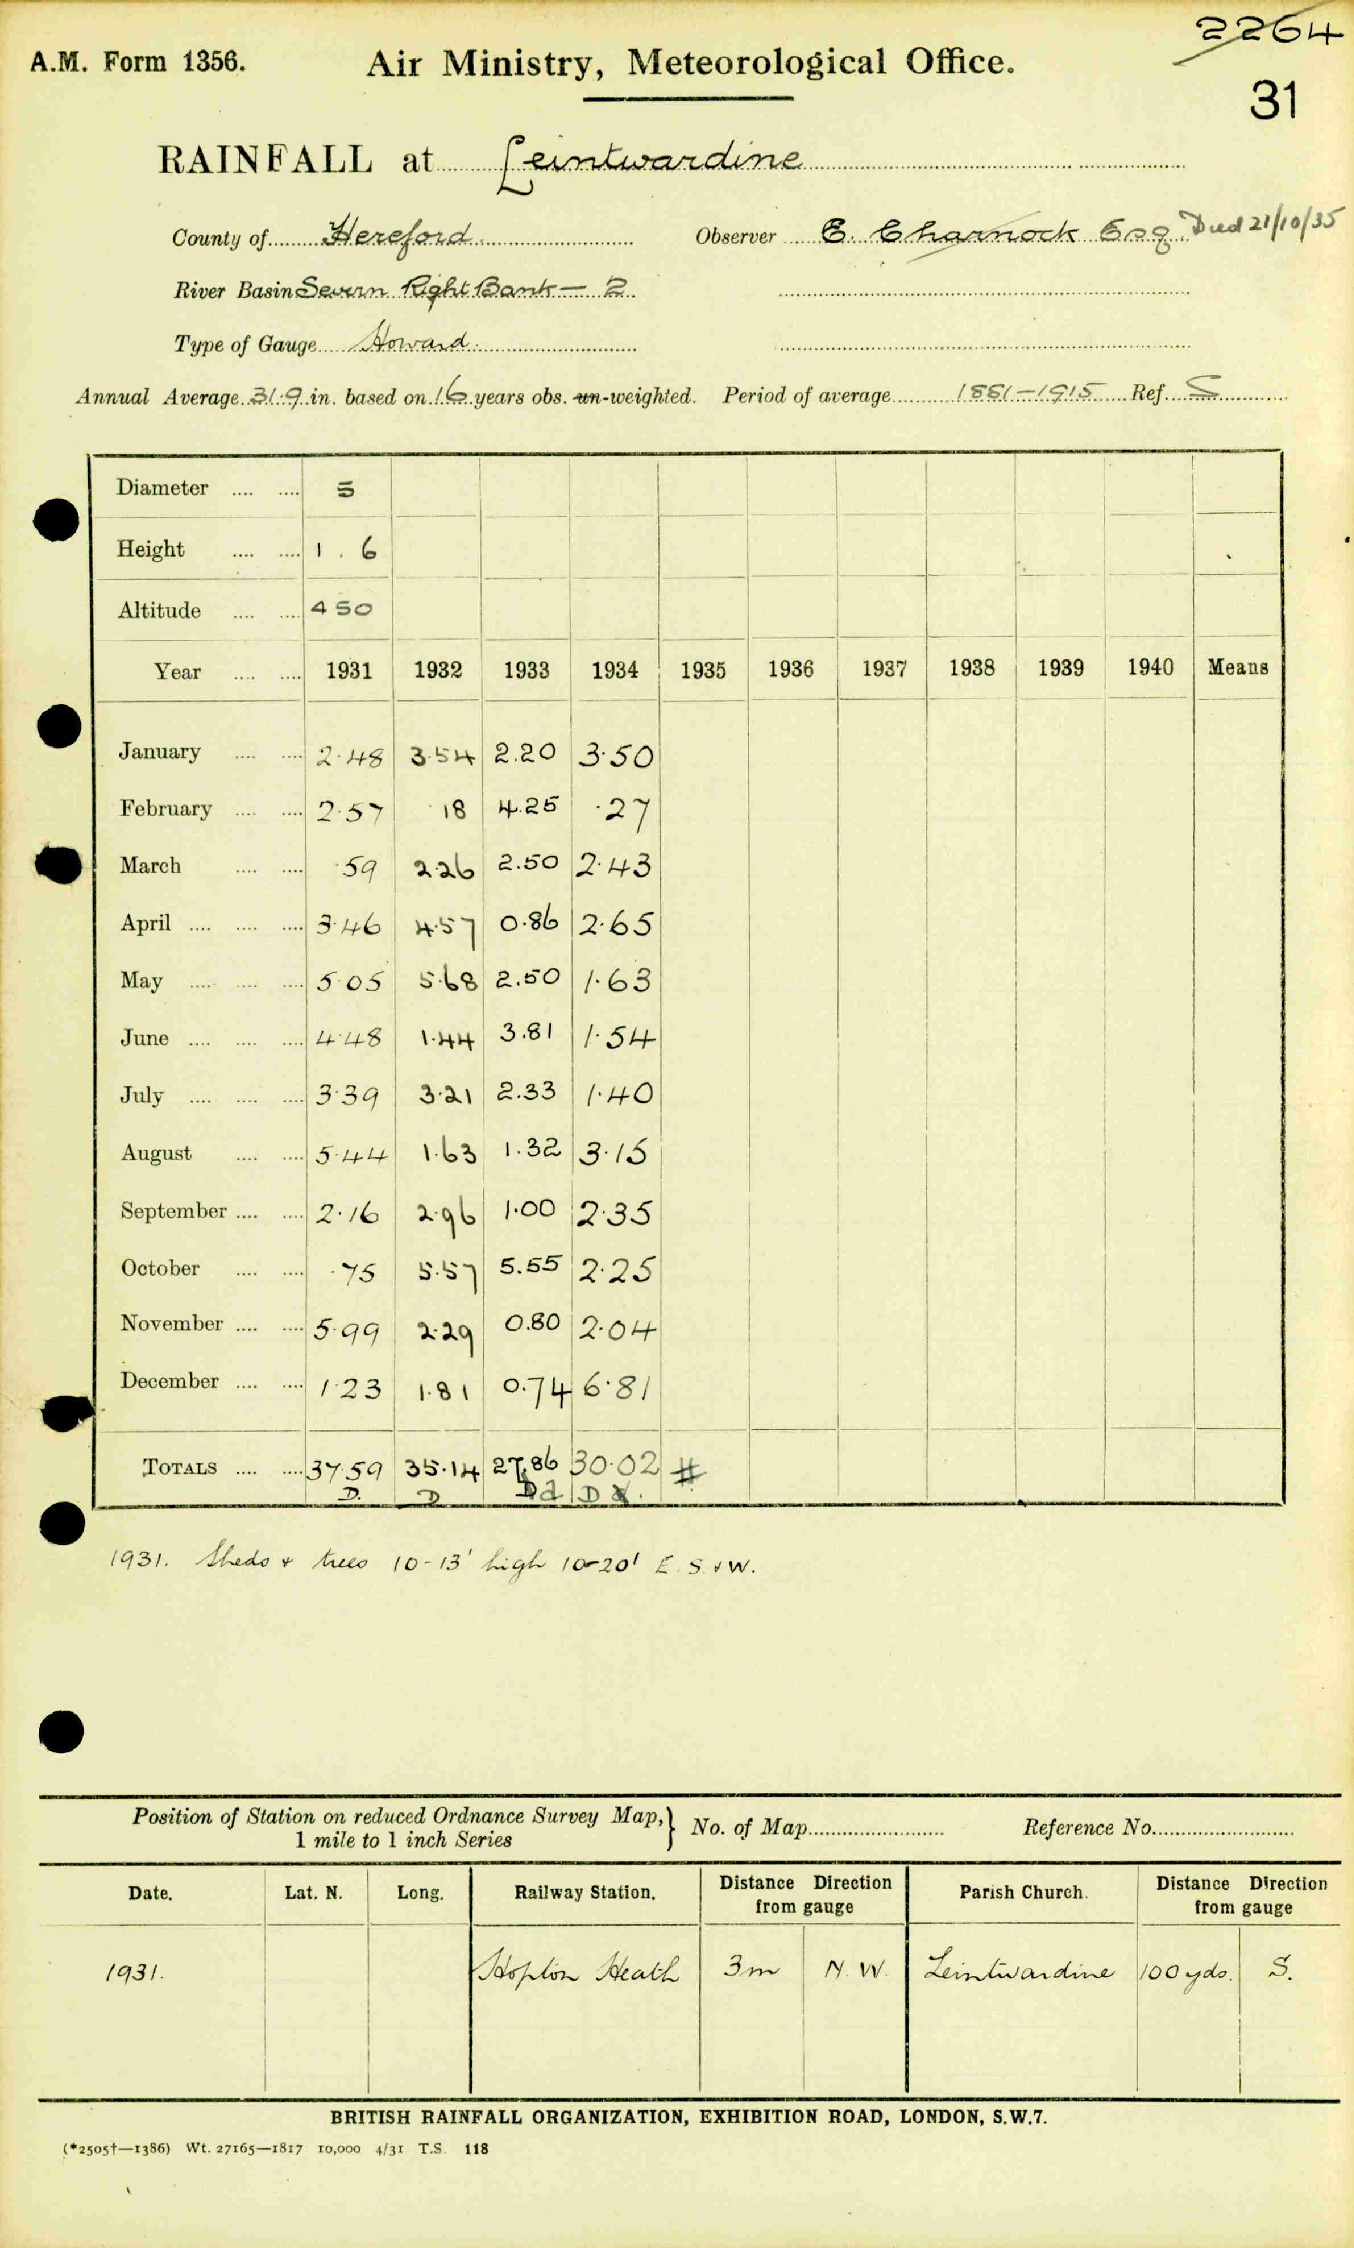 2264
A.M. Form 1356. Air Ministry, Meteorological Office.
31
RAINFALL at Leintwardine
County of Hereford Observer E. Charnock Esq Died 21/10/35
River Basin Severn Right Bank — 2
Type of Gauge Howard.
Annual Average 31.9 in. based on 16 years obs. un-weighted. Period of average 1881-1915 Ref. S
Diameter .... .... 5
Height .... .... 1 . 6
Altitude .... .... 450
Year .... .... 1931 1932 1933 1934 1935 1936 1937 1938 1939 1940 Means
January .... .... 2.48 3.54 2.20 3.50
February .... .... 2.57 .18 4.25 .27
March .... .... .59 2.26 2.50 2.43
April .... .... .... 3.46 4.57 0.86 2.65
May .... .... .... 5.05 5.68 2.50 1.63
June .... .... .... 4.48 1.44 3.81 1.54
July .... .... .... 3.39 3.21 2.33 1.40
August .... .... 5.44 1.63 1.32 3.15
September .... .... 2.16 2.96 1.00 2.35
October .... .... .75 5.57 5.55 2.25
November .... .... 5.99 2.29 0.80 2.04
December .... .... 1.23 1.81 0.74 6.81
TOTALS .... .... 37.59 35.14 27.86 30.02 #
D. D Dd D
1931. Sheds & trees 10-13' high 10-20' E. S. & W.
Position of Station on reduced Ordnance Survey Map, } No. of Map Reference No.
1 mile to 1 inch Series
Date. Lat. N. Long. Railway Station. Distance Direction from gauge Parish Church. Distance Direction from gauge
1931. Hopton Heath 3m N.W. Leintwardine 100 yds. S.
BRITISH RAINFALL ORGANIZATION, EXHIBITION ROAD, LONDON, S.W.7.
(*2505†—1386) Wt. 27165—1817 10,000 4/31 T.S. 118